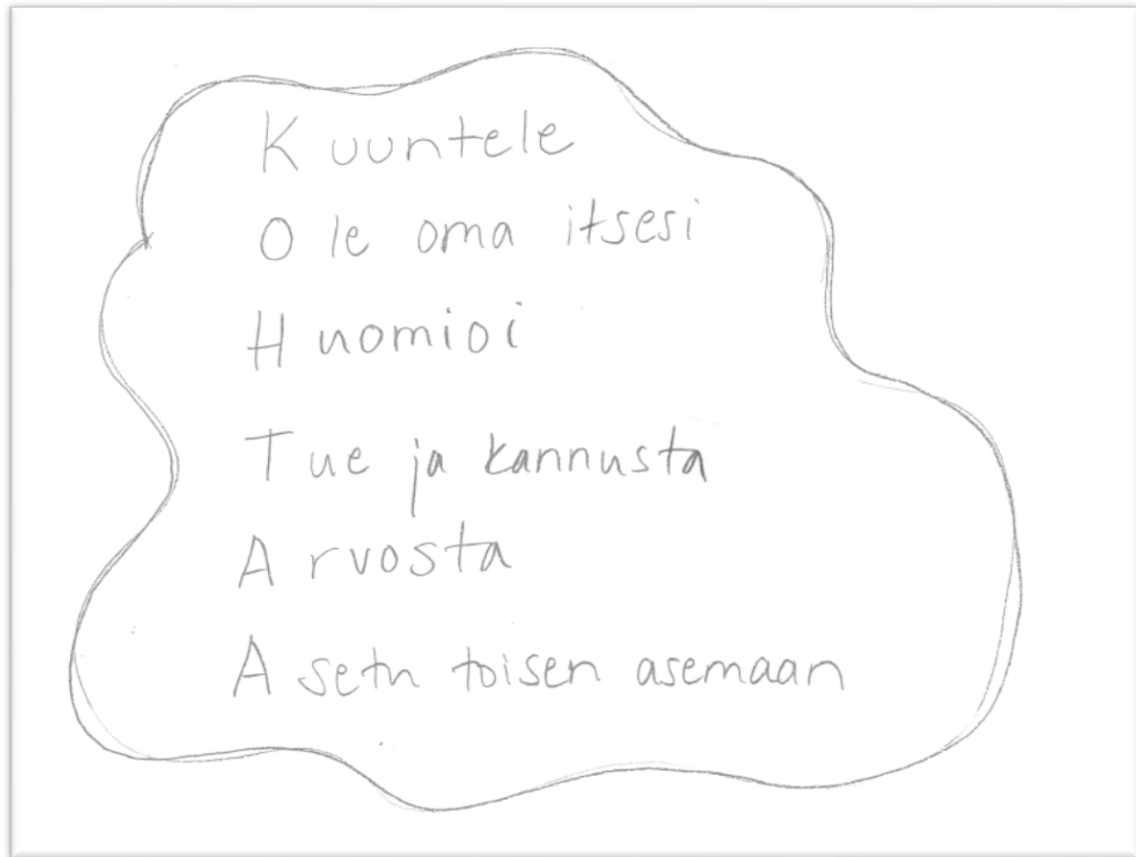 Kuuntele
Ole oma itsesi
Huomioi
Tue ja kannusta
Arvosta
Asetu toisen asemaan